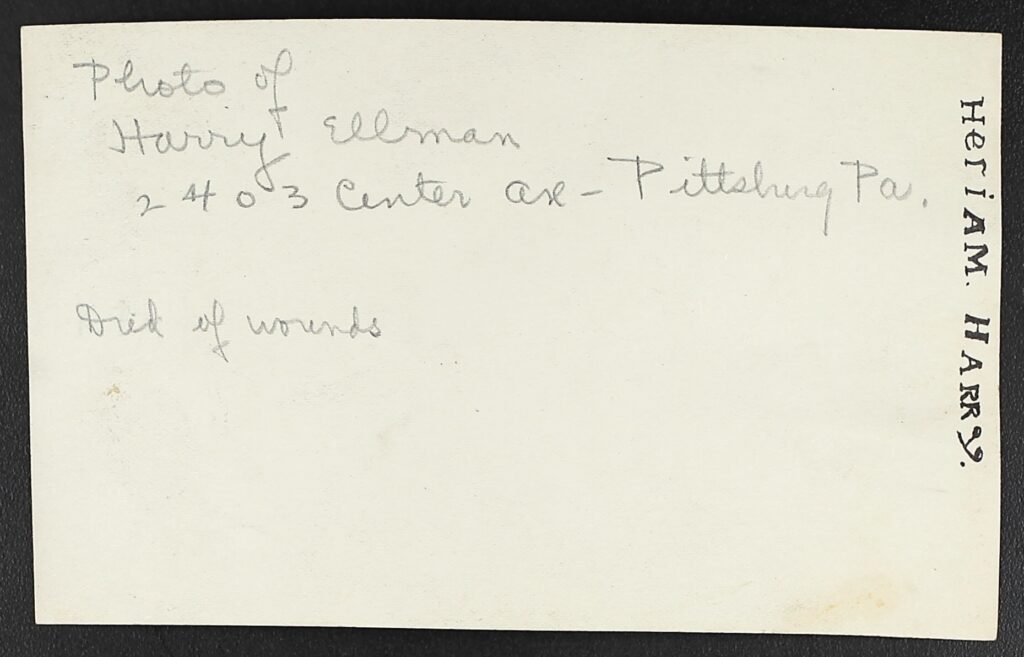 Photo of
Harry Ellman
2403 Center ave - Pittsburg Pa.
Died of wounds
HeriAM. HARRy.